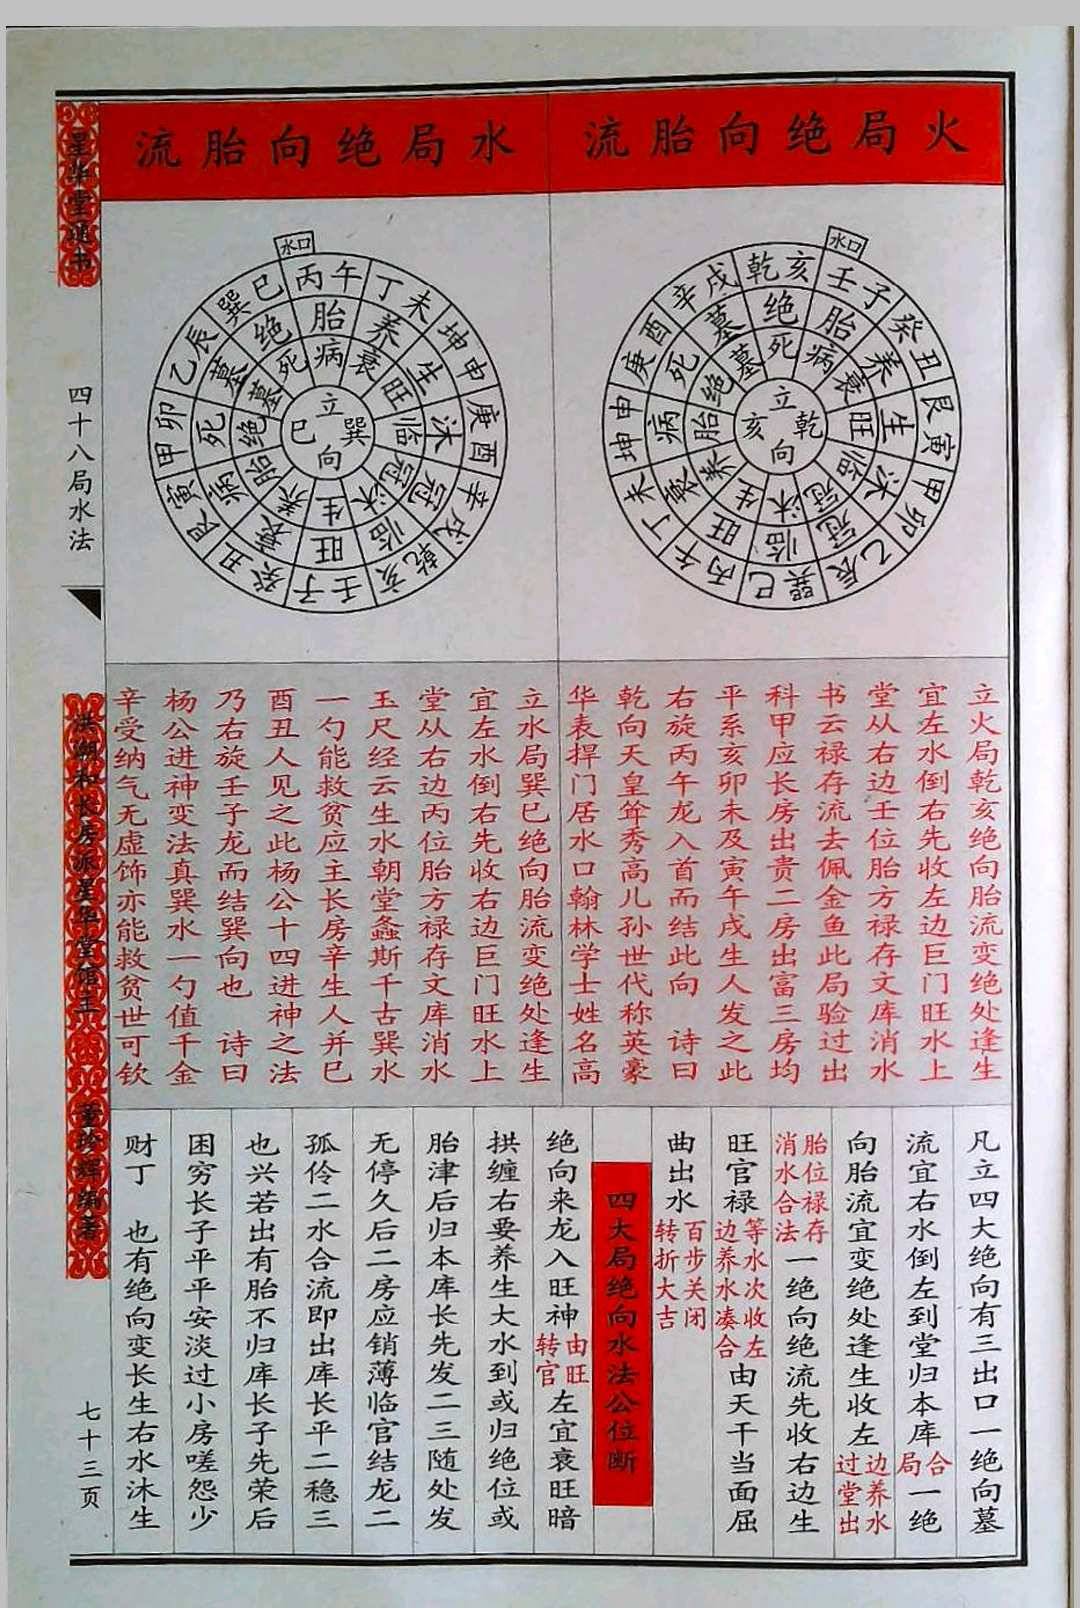 火局绝向胎流
水口
乾亥
壬子
癸丑
艮寅
甲卯
乙辰
巽巳
丙午
丁未
坤申
庚酉
辛戌
绝
胎
养
生
沐
冠
临
旺
衰
病
死
墓
死
病
衰
旺
临
冠
沐
生
养
胎
绝
墓
立乾向亥
水局绝向胎流
水口
丙午
丁未
坤申
庚酉
辛戌
乾亥
壬子
癸丑
艮寅
甲卯
乙辰
巽巳
胎
养
生
沐
冠
临
旺
衰
病
死
墓
绝
病
衰
旺
临
冠
沐
生
养
胎
绝
墓
死
立巽向巳
立火局乾亥绝向胎流变绝处逢生
宜左水倒右先收左边巨门旺水上
堂从右边壬位胎方禄存文库消水
书云禄存流去佩金鱼此局验过出
科甲应长房出贵二房出富三房均
平系亥卯未及寅午戌生人发之此
右旋丙午龙入首而结此向 诗曰
乾向天皇耸秀高儿孙世代称英豪
华表捍门居水口翰林学士姓名高
立水局巽巳绝向胎流变绝处逢生
宜左水倒右先收右边巨门旺水上
堂从右边丙位胎方禄存文库消水
玉尺经云生水朝堂螽斯千古巽水
一勺能救贫应主长房辛生人并巳
酉丑人见之此杨公十四进神之法
乃右旋壬子龙而结巽向也 诗曰
杨公进神变法真巽水一勺值千金
辛受纳气无虚饰亦能救贫世可钦
凡立四大绝向有三出口一绝向墓
流宜右水倒左到堂归本库合局一绝
向胎流宜变绝处逢生收左边养水过堂出
胎位禄存消水合法一绝向绝流先收右边生
旺官禄等水次收左边养水凑合由天干当面屈
曲出水百步关闭转折大吉
四大局绝向水法公位断
绝向来龙入旺神由旺转官左宜衰旺暗
拱缠右要养生大水到或归绝位或
胎津后归本库长先发二三随处发
无停久后二房应销薄临官结龙二
孤伶二水合流即出库长平二稳三
也兴若出有胎不归库长子先荣后
困穷长子平平安淡过小房嗟怨少
财丁 也有绝向变长生右水沐生
星华堂通书
四十八局水法
洪潮和长房派星华堂馆主
董珍辉编著
七十三页